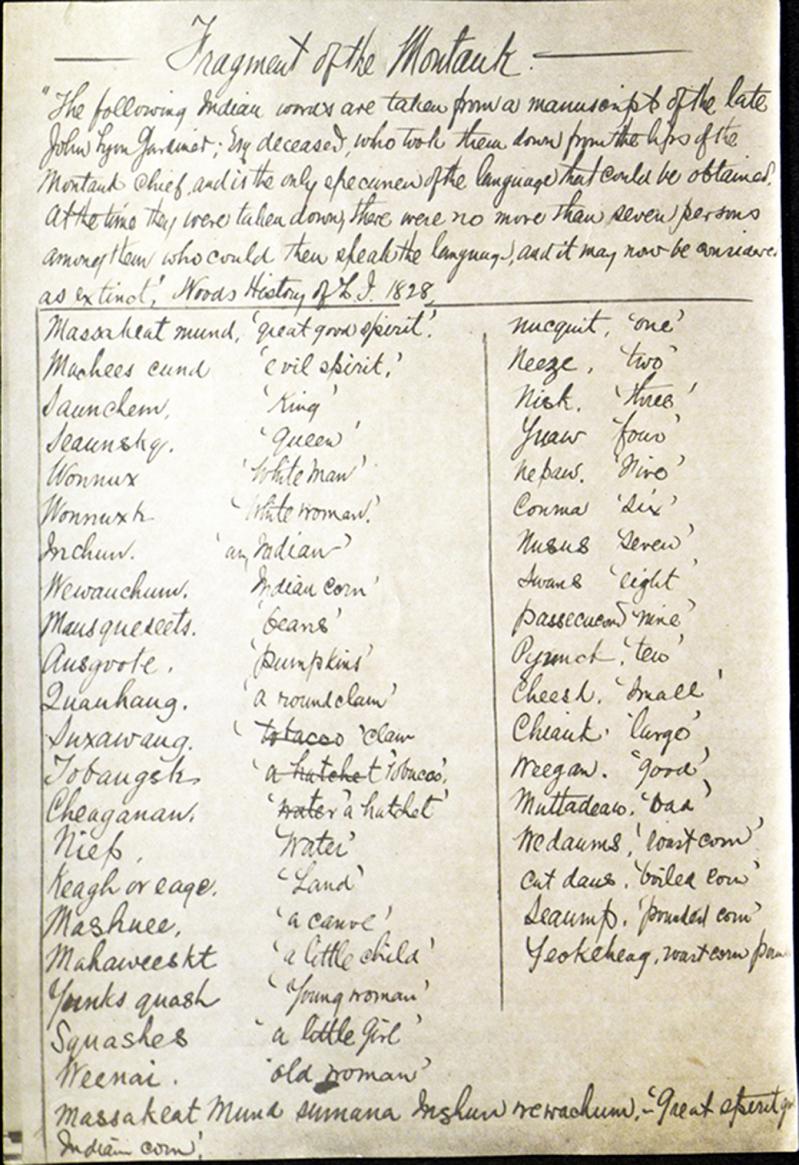 Fragment of the Montauk.
"The following Indian words are taken from a manuscript of the late
John Lyon Gardiner; Esq deceased, who took them down from the lips of the
Montauk chief, and is the only specimen of the language that could be obtained.
At the time they were taken down, there were no more than seven persons
among them who could then speak the language, and it may now be considered
as extinct,' Woods History of L.I. 1828,
Massakeat mund, 'great good spirit'.
Machees cund 'evil spirit,'
Saunchem, 'King'
Seaunsky. 'Queen'
Wonnux 'White man'
Wonnuxk 'White woman.'
Inchun. 'an Indian'
Wewauchum. 'Indian corn'
Mausqueseets. 'beans'
Ausgoote. 'pumpkins'
Quauhaug. 'a round clam'
Suxawaug. 'tobacco 'clam
Tobaugsk 'a hatchet tobacco.'
Cheaganan. 'water 'a hatchet'
Nief, 'Water'
Keagh or eage. 'Land'
Mashuee, 'a canoe'
Mahaweeskt 'a little child'
Yunks quash 'Young woman'
Squashes 'a little Girl'
Weenai. 'old woman'
nucquit, 'one'
Neeze, 'two'
Nisk. 'three'
Yuaw 'four'
Nepaw. 'five'
Conma 'six'
Nusus 'seven'
Swans 'eight'
passecucond 'nine'
Pyunck, 'ten'
Cheesh. 'small'
Chiauk. 'large'
Weegan. 'good'
Muttadeaw. 'bad'
Wedaums, 'roast corn'
cut daus, 'boiled corn'
Seaump. 'pounded corn'
Yeokeheag, roast corn
Massakeat Mund sumana Inshun wewachum.- 'Great spirit
Indian corn'.